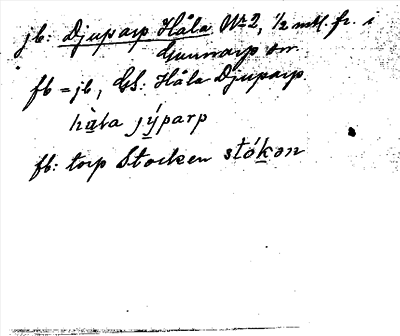 jb: Djuparp Håla No 2, 1/2 mtl. fr. i
Gunnarp sn.
fb = jb, GS: Håla Djuparp
hàla jýparp
fb: torp Stocken stókən